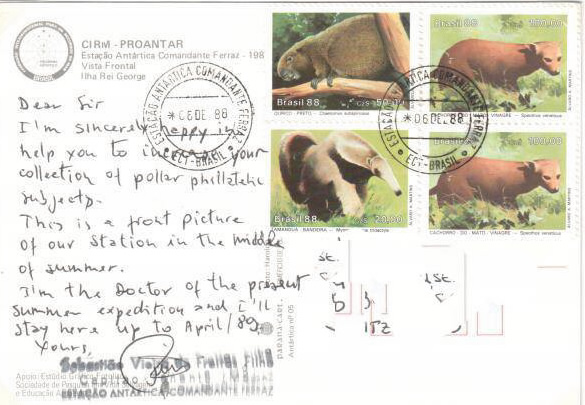 CIRM - PROANTAR
Estação Antártica Comandante Ferraz - 198
Vista Frontal
Ilha Rei George
Dear Sir
I'm sincerely happy in
help you to increase your
collection of pollar philatelic
subjects.
This is a front picture
of our Station in the middle
of summer.
I'm the Doctor of the present
summer expedition and I'll
stay here up to April/89.
Yours,
Sebastião Freitas Filho
ESTAÇÃO ANTÁRTICA COMANDANTE FERRAZ
Apoio: Estúdio
Sociedade de
e Educação
Brasil 88 50,00
OURIÇO - PRETO - Chaetomys subspinosus
Brasil 88 100,00
CACHORRO DO MATO VINAGRE - Speothos venaticus
ÁLVARO A. MARTINS
Brasil 88 70,00
TAMANDUÁ BANDEIRA
ÁLVARO A. MARTINS
Brasil 88 100,00
CACHORRO DO MATO VINAGRE - Speothos venaticus
ÁLVARO A. MARTINS
ESTAÇÃO ANTÁRTICA COMANDANTE FERRAZ
*06DE.88
ECT-BRASIL
ESTAÇÃO ANTÁRTICA COMANDANTE FERRAZ
*06DE.88
ECT-BRASIL
Antártica nº 05